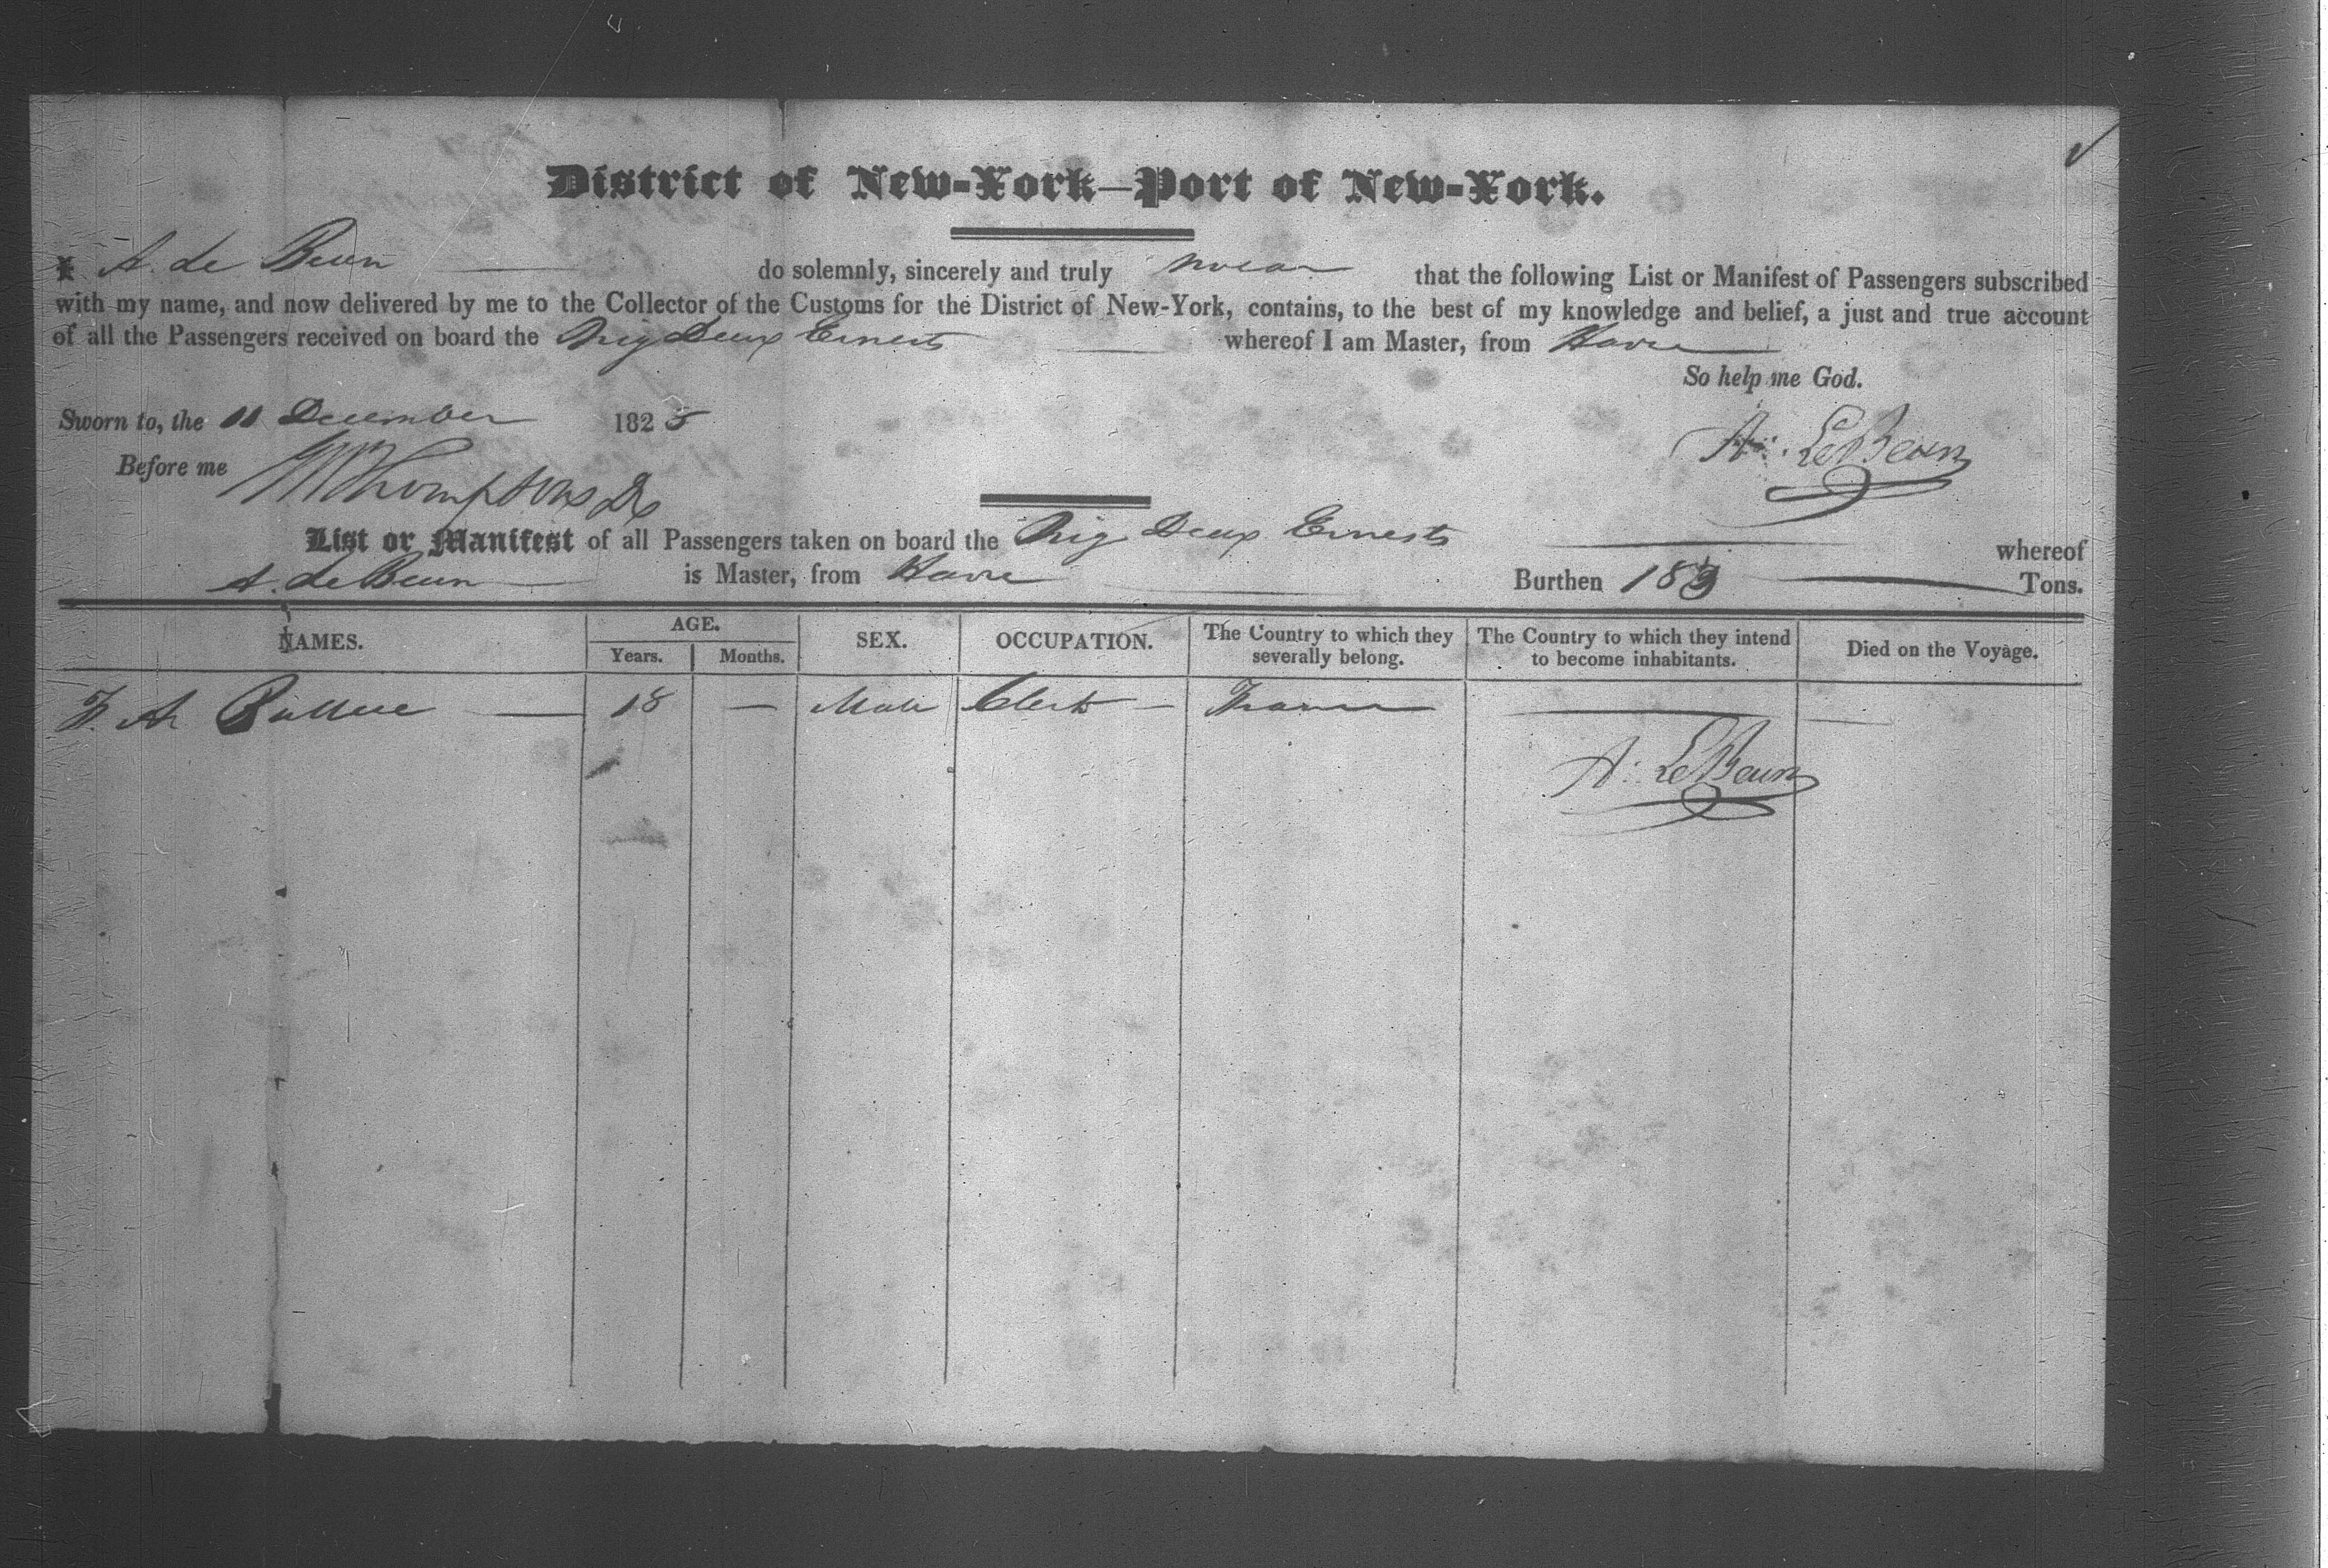 District of New-York—Port of New-York.
I A. de Beun do solemnly, sincerely and truly swear that the following List or Manifest of Passengers subscribed
with my name, and now delivered by me to the Collector of the Customs for the District of New-York, contains, to the best of my knowledge and belief, a just and true account
of all the Passengers received on board the Brig Deux Ernests whereof I am Master, from Havre
So help me God.
Sworn to, the 11 December 1825
A. LeBeun
Before me WThompson
List or Manifest of all Passengers taken on board the Brig Deux Ernests whereof
A. de Beun is Master, from Havre Burthen 183 Tons.
NAMES. AGE. Years. Months. SEX. OCCUPATION. The Country to which they severally belong. The Country to which they intend to become inhabitants. Died on the Voyage.
18 — Male Clerk — France
A. LeBeun